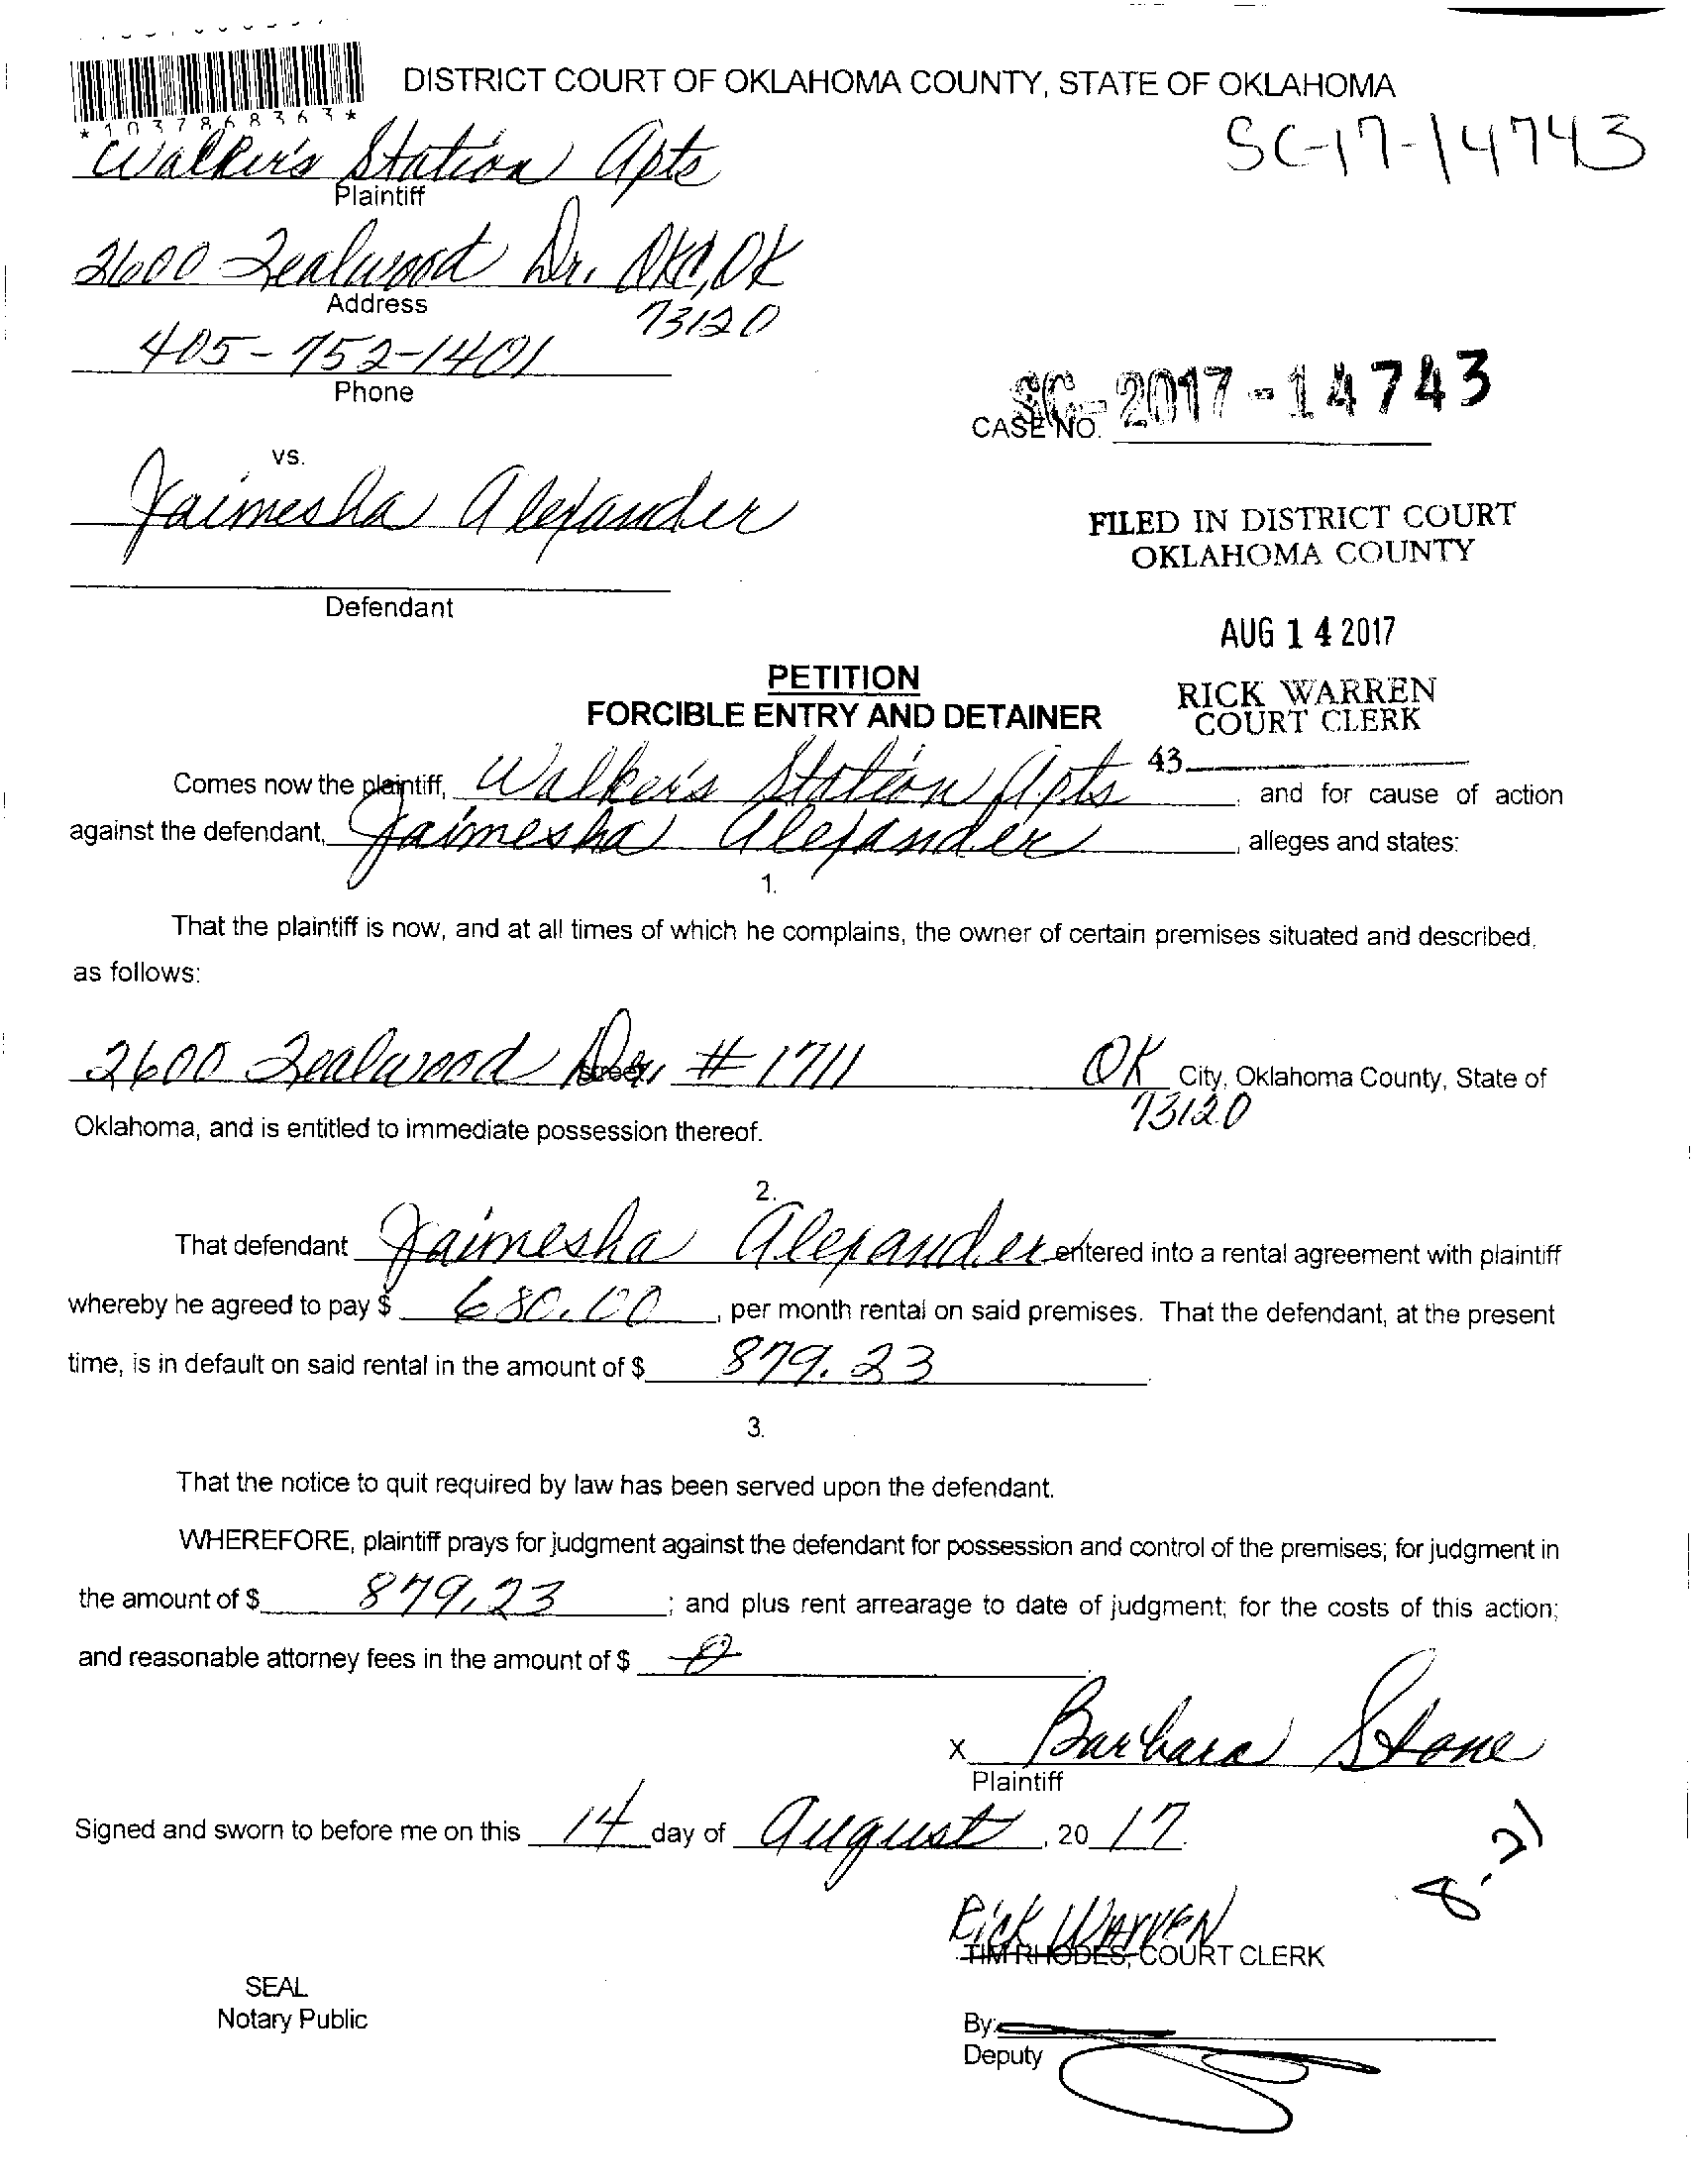 DISTRICT COURT OF OKLAHOMA COUNTY, STATE OF OKLAHOMA
*1037868363*
SC-17-14743
Walker's Station Apts
Plaintiff
2600 Zealwood Dr. OKC, OK
Address
73120
405-752-1401
Phone
SC-2017-14743
CASE NO.
vs.
Jaimesha Alexander
FILED IN DISTRICT COURT
OKLAHOMA COUNTY
Defendant
AUG 14 2017
PETITION
FORCIBLE ENTRY AND DETAINER
RICK WARREN
COURT CLERK
43
Comes now the plaintiff, Walker's Station Apts, and for cause of action
against the defendant, Jaimesha Alexander, alleges and states:
1.
That the plaintiff is now, and at all times of which he complains, the owner of certain premises situated and described,
as follows:
2600 Zealwood Dr. # 1711 OK City, Oklahoma County, State of
Street
73120
Oklahoma, and is entitled to immediate possession thereof.
2.
That defendant Jaimesha Alexander entered into a rental agreement with plaintiff
whereby he agreed to pay $ 680.00, per month rental on said premises. That the defendant, at the present
time, is in default on said rental in the amount of $ 879.23
3.
That the notice to quit required by law has been served upon the defendant.
WHEREFORE, plaintiff prays for judgment against the defendant for possession and control of the premises; for judgment in
the amount of $ 879.23; and plus rent arrearage to date of judgment; for the costs of this action;
and reasonable attorney fees in the amount of $ 0
X Barbara Stone
Plaintiff
Signed and sworn to before me on this 14 day of August, 20 17.
8-21
Rick Warren
TIM RHODES, COURT CLERK
SEAL
Notary Public
By:
Deputy